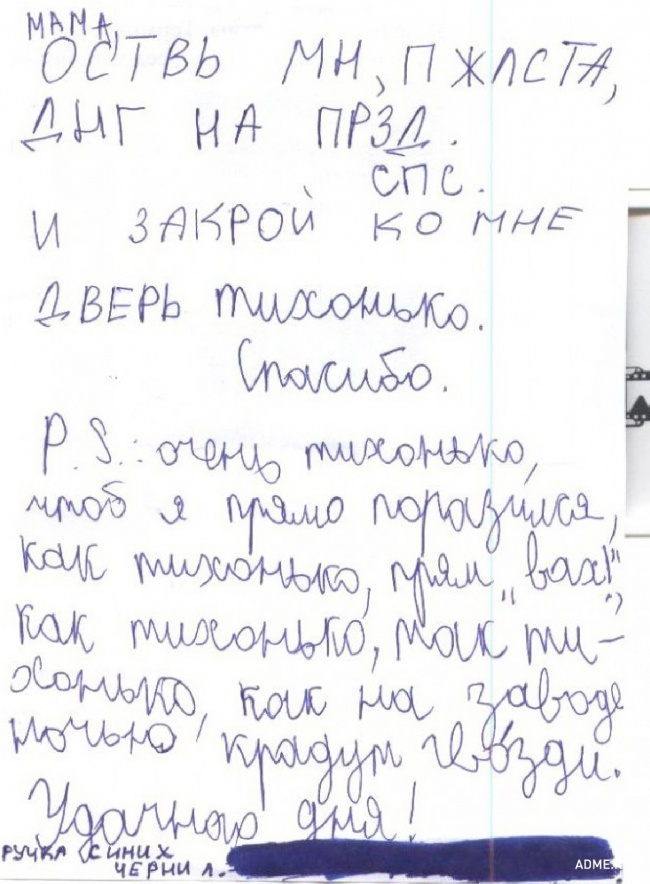 МАМА,
ОСТВЬ МН, ПЖЛСТА,
ДНГ НА ПРЗД.
СПС.
И ЗАКРОЙ КО МНЕ
ДВЕРЬ тихонько.
Спасибо.
P.S.: очень тихонько,
чтоб я прямо поразился,
как тихонько, прям „вах!",
как тихонько, так ти-
хонько, как на заводе
ночью крадут гвозди.
Удачного дня!
РУЧКА СИНИХ
ЧЕРНИЛ.-
ADME.